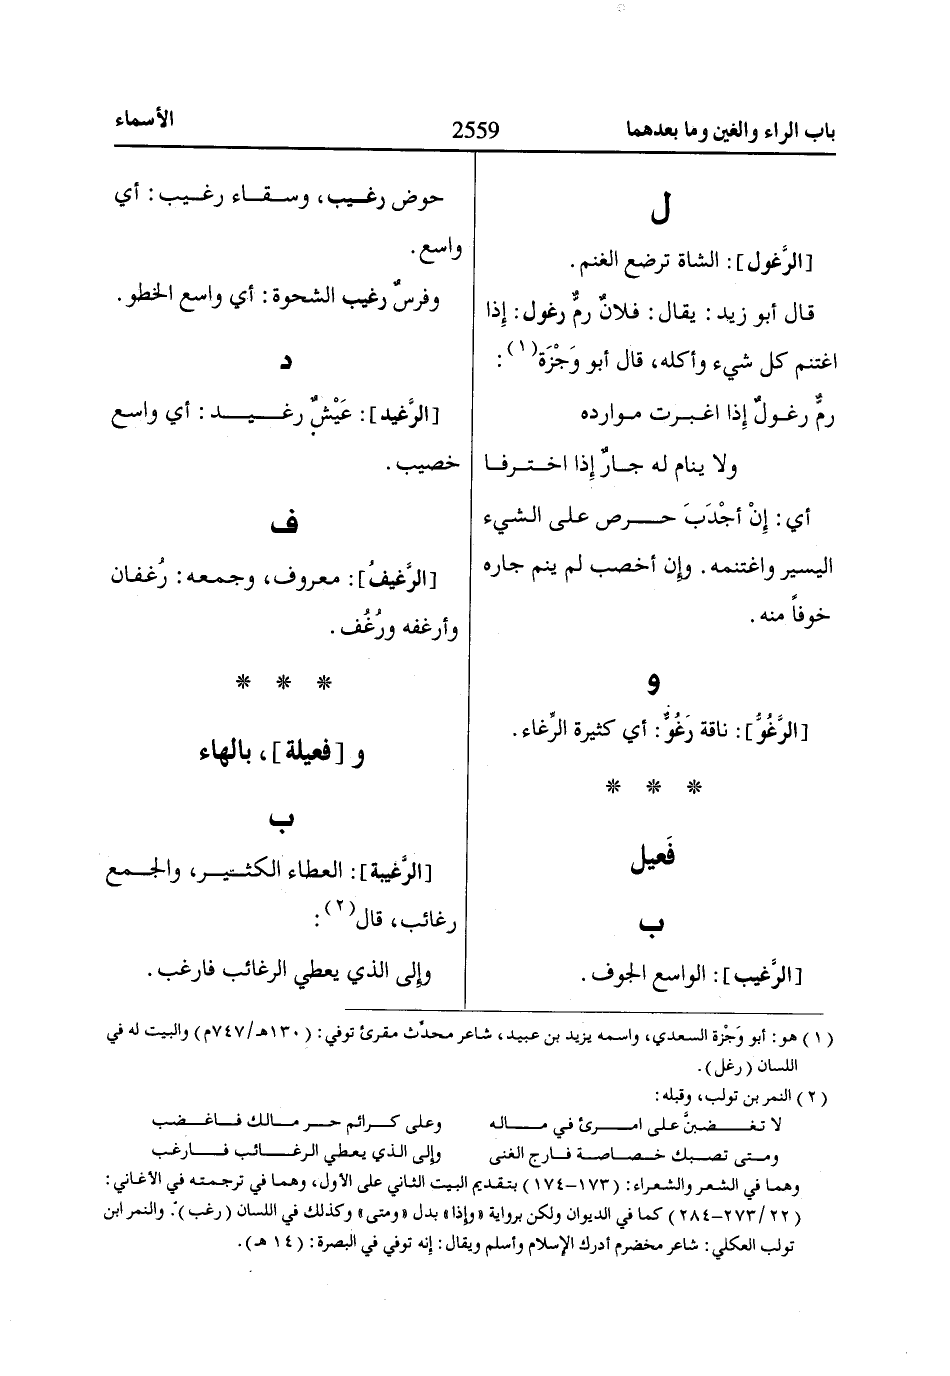 باب الراء والغين وما بعدهما
2559
الأسماء
ل
[الرَّغول]: الشاة ترضع الغنم.
قال أبو زيد: يقال: فلانٌ رمٌّ رغول: إذا
اغتنم كل شيء وأكله، قال أبو وَجْزَة(١):
رمٌّ رغولٌ إذا اغبرت موارده
ولا ينام له جارٌ إذا اخترفا
أي: إنْ أجْدَبَ حرص على الشيء
اليسير واغتنمه. وإن أخصب لم ينم جاره
خوفاً منه.
و
[الرَّغُوُّ]: ناقة رَغُوٌّ: أي كثيرة الرِّغاء.
* * *
فَعيل
ب
[الرَّغيب]: الواسع الجوف.
حوض رغيب، وسقاء رغيب: أي
واسع.
وفرسٌ رغيب الشحوة: أي واسع الخطو.
د
[الرَّغيد]: عَيْشٌ رغيد: أي واسع
خصيب.
ف
[الرَّغيفُ]: معروف، وجمعه: رُغفان
وأرغفه ورُغُف.
* * *
و [فعيلة]، بالهاء
ب
[الرَّغيبة]: العطاء الكثير، والجمع
رغائب، قال(٢):
وإلى الذي يعطي الرغائب فارغب.
(١) هو: أبو وَجْزة السعدي، واسمه يزيد بن عبيد، شاعر محدِّث مقرئ توفي: (١٣٠هـ/٧٤٧م) والبيت له في
اللسان (رغل).
(٢) النمر بن تولب، وقبله:
لا تغضبنَّ على امرئ في ماله وعلى كرائم حر مالك فاغضب
ومتى تصبك خصاصة فارج الغنى وإلى الذي يعطي الرغائب فارغب
وهما في الشعر والشعراء: (١٧٣-١٧٤) بتقديم البيت الثاني على الأول، وهما في ترجمته في الأغاني:
(٢٢/٢٧٣-٢٨٤) كما في الديوان ولكن برواية «وإذا» بدل «ومتى» وكذلك في اللسان (رغب). والنمر ابن
تولب العكلي: شاعر مخضرم أدرك الإسلام وأسلم ويقال: إنه توفي في البصرة: (١٤ هـ).